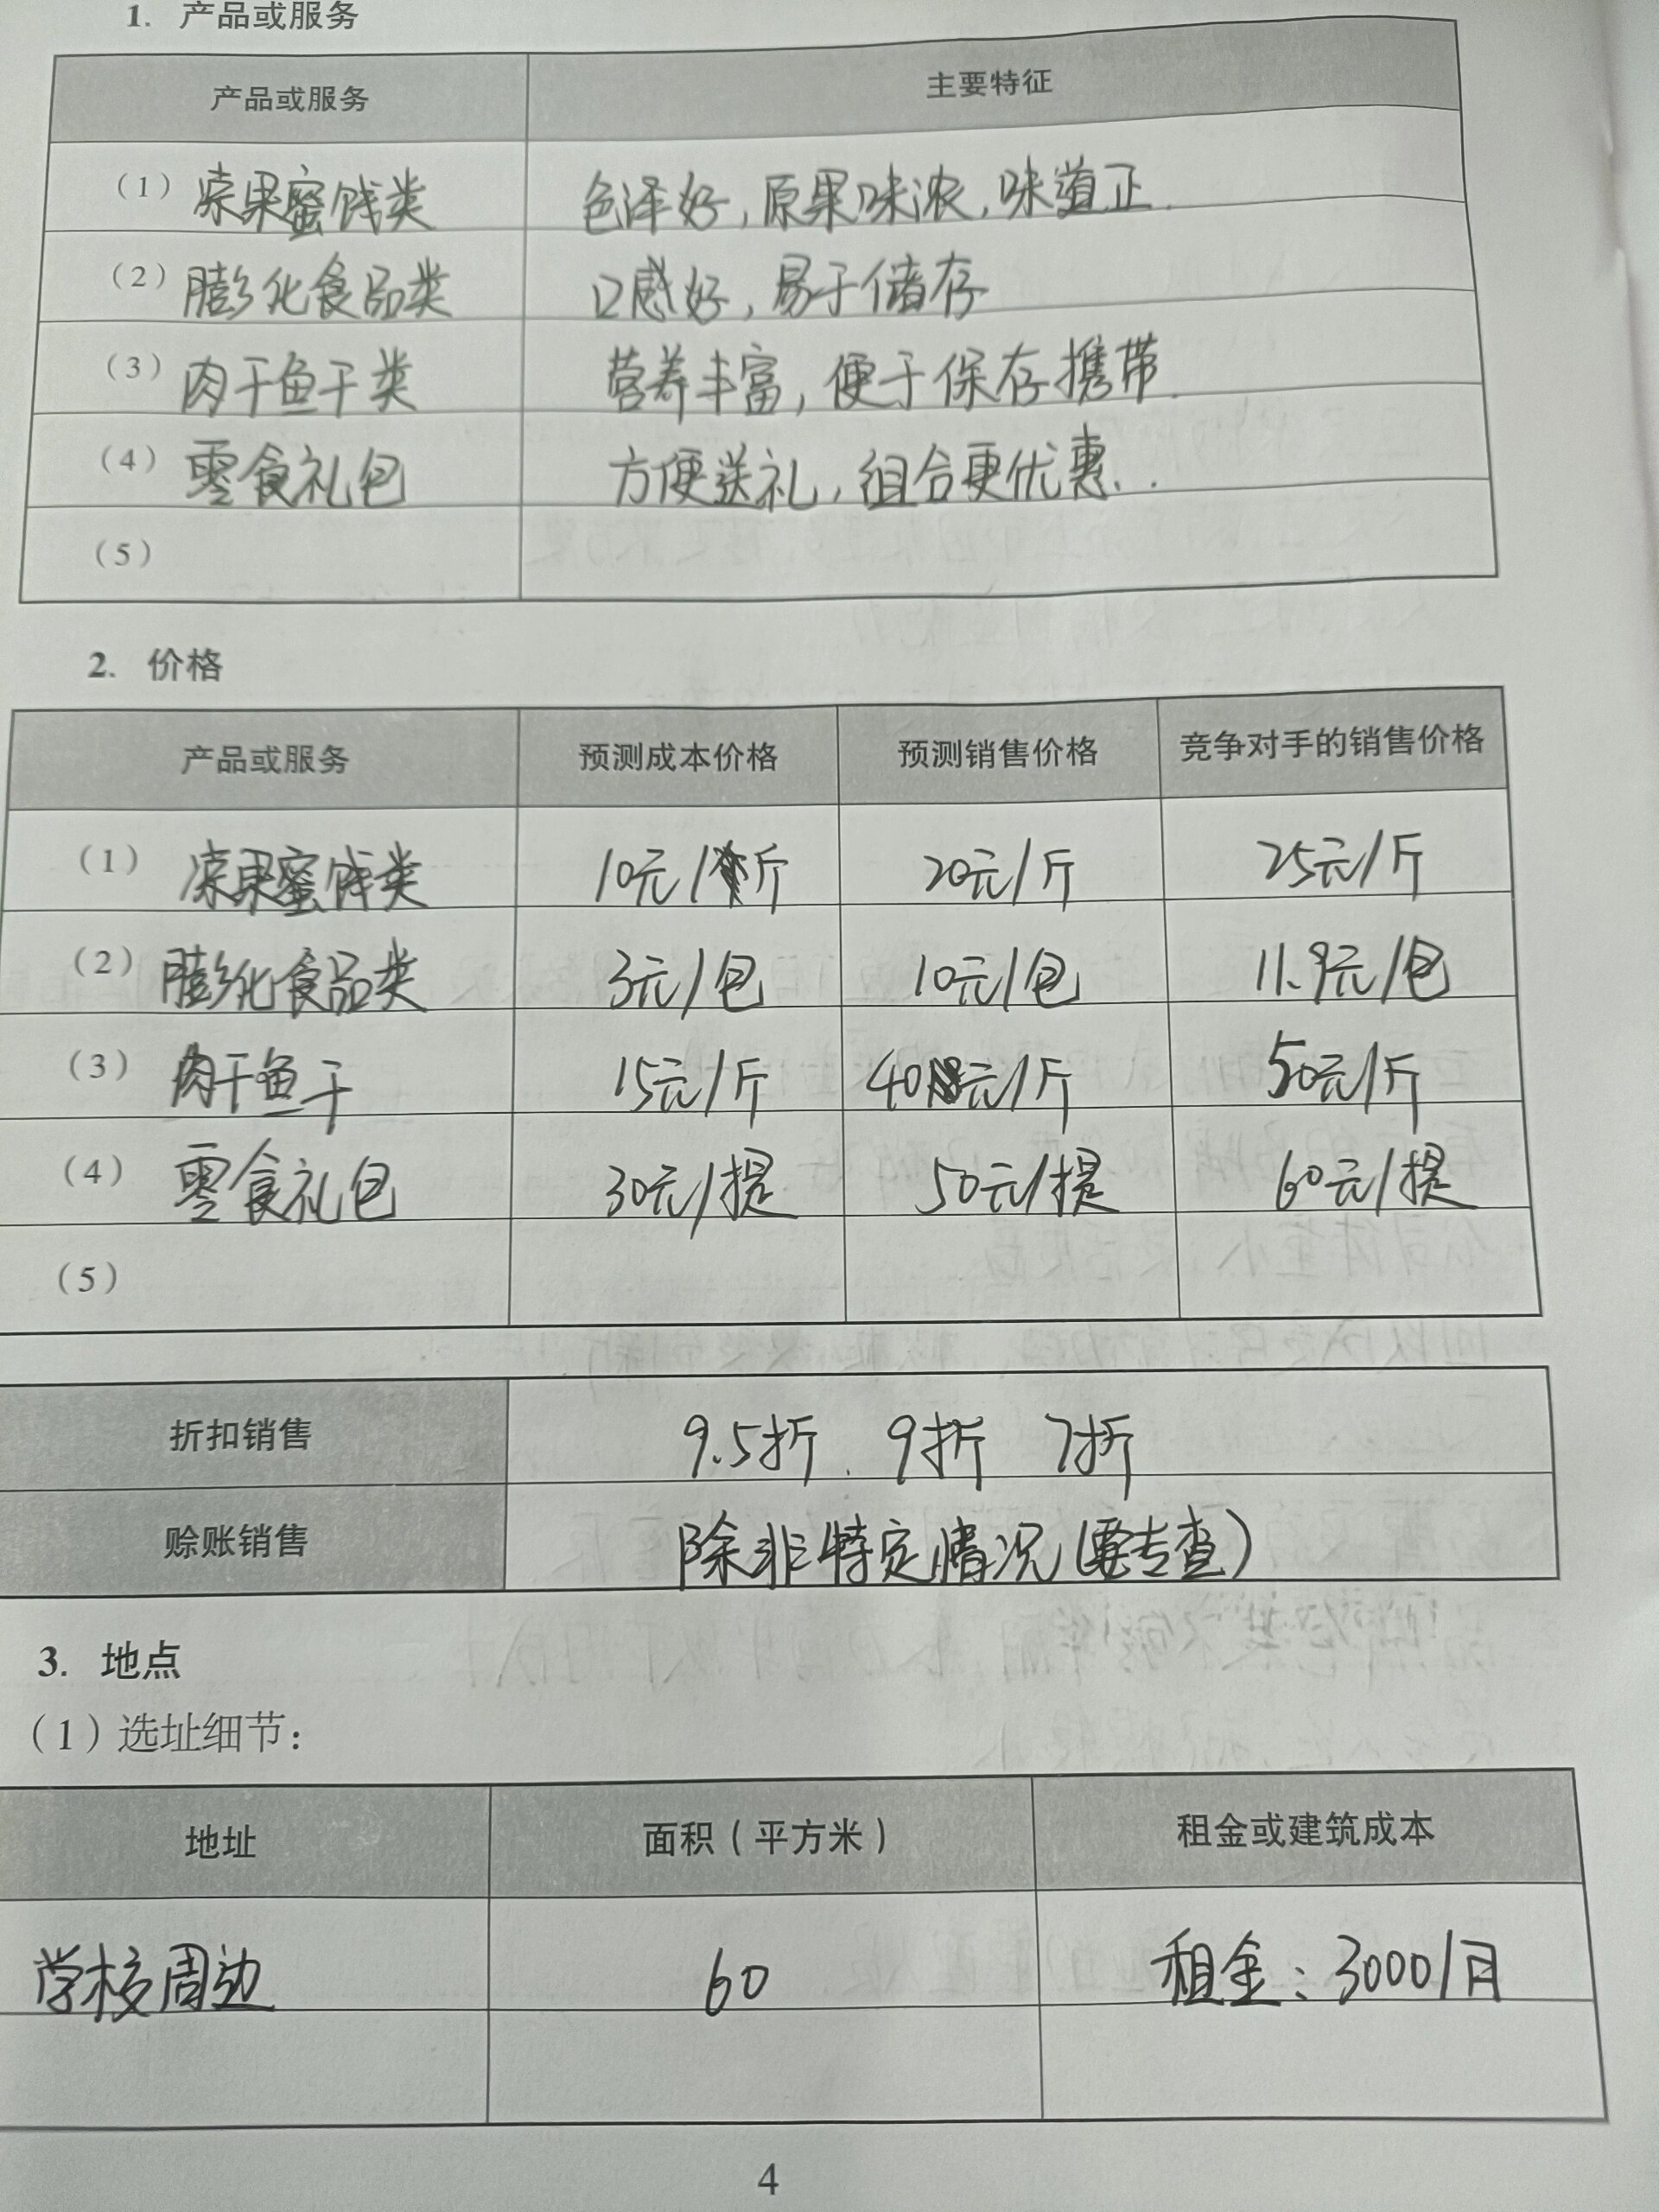 1. 产品或服务
产品或服务 主要特征
(1) 凉果蜜饯类 色泽好,原果味浓,味道正.
(2) 膨化食品类 口感好,易于储存
(3) 肉干鱼干类 营养丰富,便于保存携带.
(4) 零食礼包 方便送礼,组合更优惠..
(5)
2. 价格
产品或服务 预测成本价格 预测销售价格 竞争对手的销售价格
(1) 凉果蜜饯类 10元/斤 20元/斤 25元/斤
(2) 膨化食品类 3元/包 10元/包 11.9元/包
(3) 肉干鱼干 15元/斤 40元/斤 50元/斤
(4) 零食礼包 30元/提 50元/提 60元/提
(5)
折扣销售 9.5折. 9折 7折
赊账销售 除非特定情况(要专查)
3. 地点
(1)选址细节:
地址 面积(平方米) 租金或建筑成本
学校周边 60 租金:3000/月
4